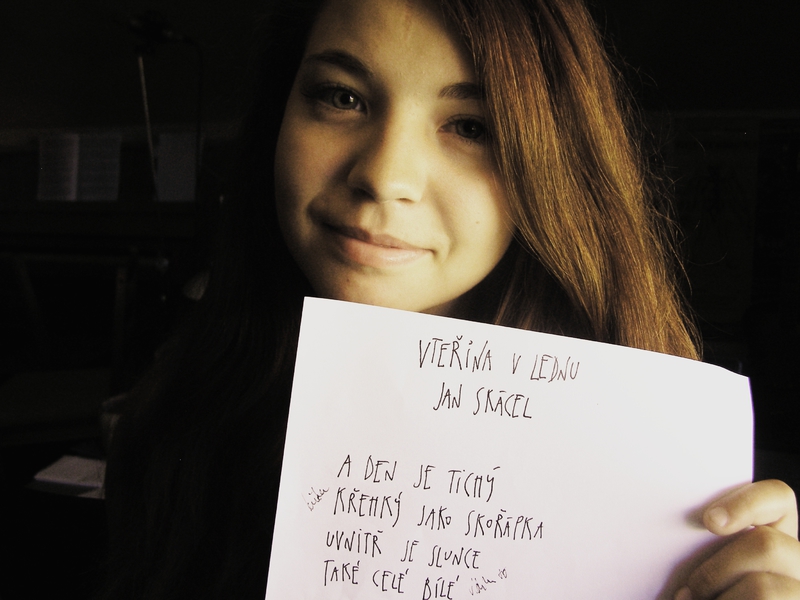 VTEŘINA V LEDNU
JAN SKÁCEL
A DEN JE TICHÝ
KŘEHKÝ JAKO SKOŘÁPKA
UVNITŘ JE SLUNCE
TAKÉ CELÉ BÍLÉ